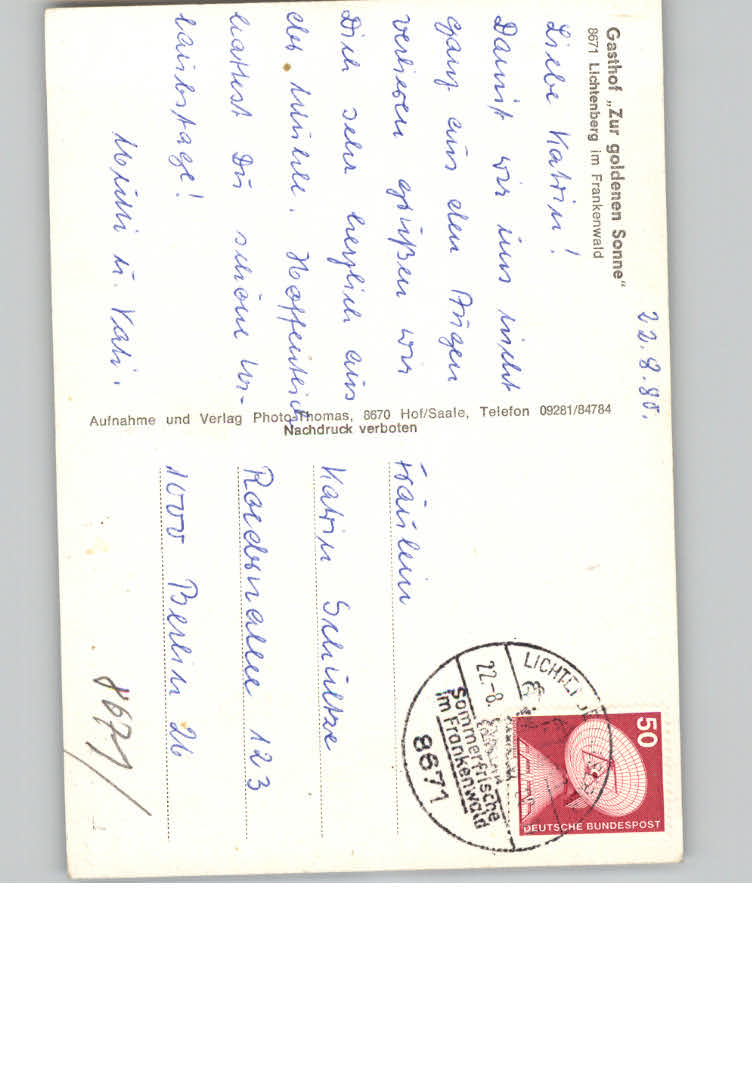 Gasthof „Zur goldenen Sonne"
8671 Lichtenberg im Frankenwald
22.8.80.
Liebe Katrin!
Damit wir uns nicht
ganz aus den Augen
verlieren grüßen wir
Dich sehr herzlich aus
der Hoffentlich
hattest Du schöne Ur-
laubstage!
u. Kati.
Aufnahme und Verlag Photo-Thomas, 8670 Hof/Saale, Telefon 09281/84784
Nachdruck verboten
Fräulein
Katrin Schultze
123
1000 Berlin 26
8671/
50
DEUTSCHE BUNDESPOST
22.-8.
Sommerfrische
im Frankenwald
8671